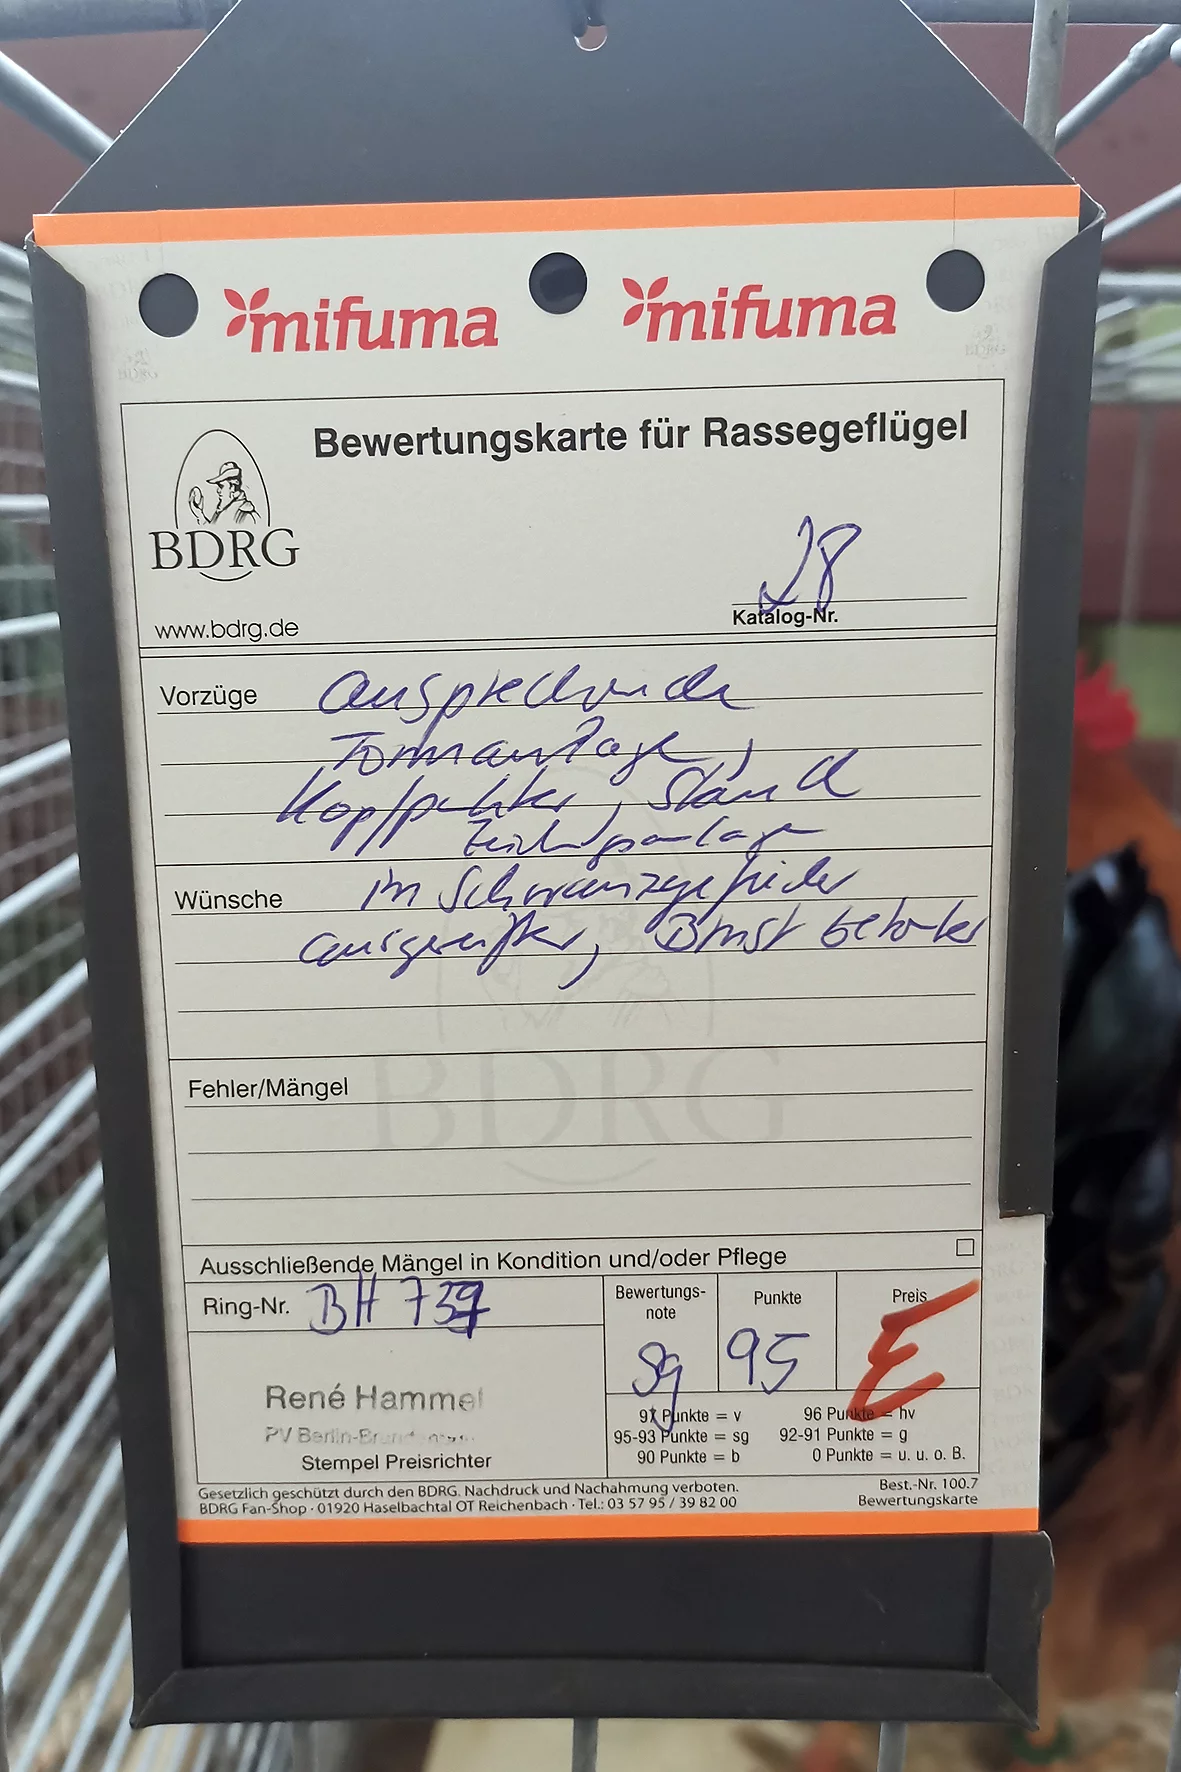 mifuma mifuma
Bewertungskarte für Rassegeflügel
BDRG
28
Katalog-Nr.
www.bdrg.de
Vorzüge ansprechende
Formanlage,
Kopfpunkte, Stand
Zeichnungsanlage
Wünsche im Schwanzgefieder
ausgereifter, Brust betonter
BDRG
Fehler/Mängel
Ausschließende Mängel in Kondition und/oder Pflege
Ring-Nr. BH
Bewertungs-
note
Punkte
Preis
sg 95 E
René Hammel
PV Berlin-Brandenburg
Stempel Preisrichter
97 Punkte = v 96 Punkte = hv
95-93 Punkte = sg 92-91 Punkte = g
90 Punkte = b 0 Punkte = u. u. o. B.
Gesetzlich geschützt durch den BDRG. Nachdruck und Nachahmung verboten.
BDRG Fan-Shop · 01920 Haselbachtal OT Reichenbach · Tel.: 03 57 95 / 39 82 00
Best.-Nr. 100.7
Bewertungskarte